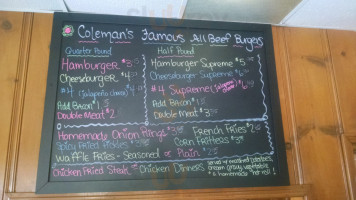 Coleman's Famous All Beef Burgers
Quarter Pound
Hamburger
Cheeseburger
#4 (jalapeno cheese)
Add Bacon
Double Meat $2
Half Pound
Hamburger Supreme
Cheeseburger Supreme
#4 Supreme (jalapeno cheese)
Add Bacon
Double Meat
Homemade Onion Rings
French Fries
Spicy Fried Pickles
Corn Fritters
Waffle Fries - Seasoned or Plain
Chicken Fried Steak or Chicken Dinners
served w/ mashed potatoes,
cream gravy, vegetable
& homemade hot roll!